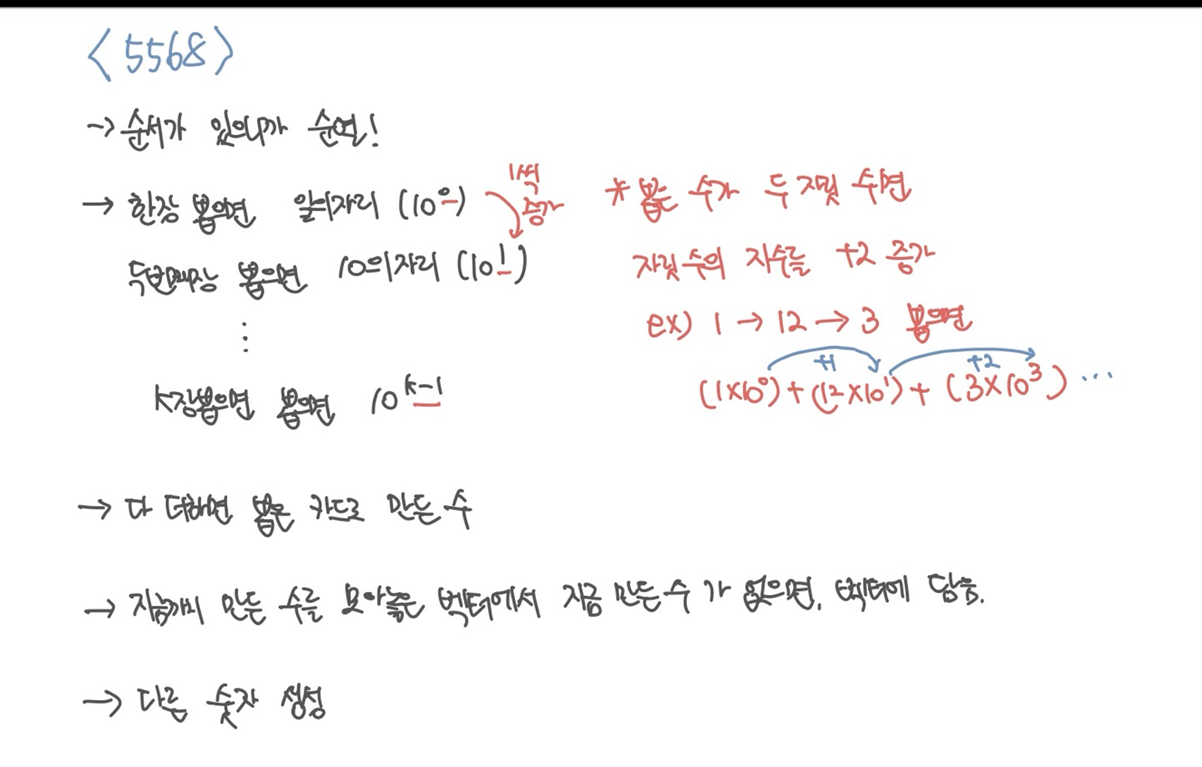 <5568>
→ 순서가 있으니까 순열!
→ 한장 뽑으면 일의자리 (10⁰)
1씩
증가
두번째장 뽑으면 10의자리 (10¹)
⋮
k장뽑으면 뽑으면 10ᵏ⁻¹
* 뽑는 수가 두 자릿 수면
자릿수의 지수를 +2 증가
ex) 1 → 12 → 3 뽑으면
+1 +2
(1×10⁰) + (12×10¹) + (3×10³) ...
→ 다 더하면 뽑은 카드로 만든 수
→ 지금까지 만든 수를 모아놓은 벡터에서 지금 만든 수 가 없으면, 벡터에 담음.
→ 다른 숫자 생성